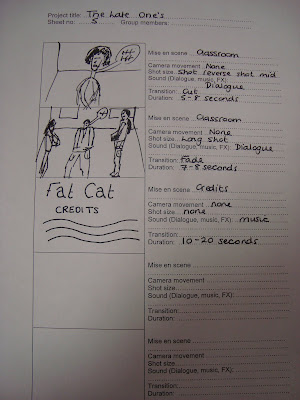 Project title: The Late One's
Sheet no: 5 Group members:
Mise en scene Classroom
Camera movement None
Shot size shot reverse shot mid
Sound (Dialogue, music, FX) Dialogue
Transition: Cut
Duration: 5-8 seconds
Mise en scene Classroom
Camera movement None
Shot size Long shot
Sound (Dialogue, music, FX) Dialogue
Transition: Fade
Duration: 7-8 seconds
Fat Cat
CREDITS
Mise en scene Credits
Camera movement none
Shot size none
Sound (Dialogue, music, FX) music
Transition:
Duration: 10-20 seconds
Mise en scene
Camera movement
Shot size
Sound (Dialogue, music, FX)
Transition:
Duration:
Mise en scene
Camera movement
Shot size
Sound (Dialogue, music, FX)
Transition:
Duration: